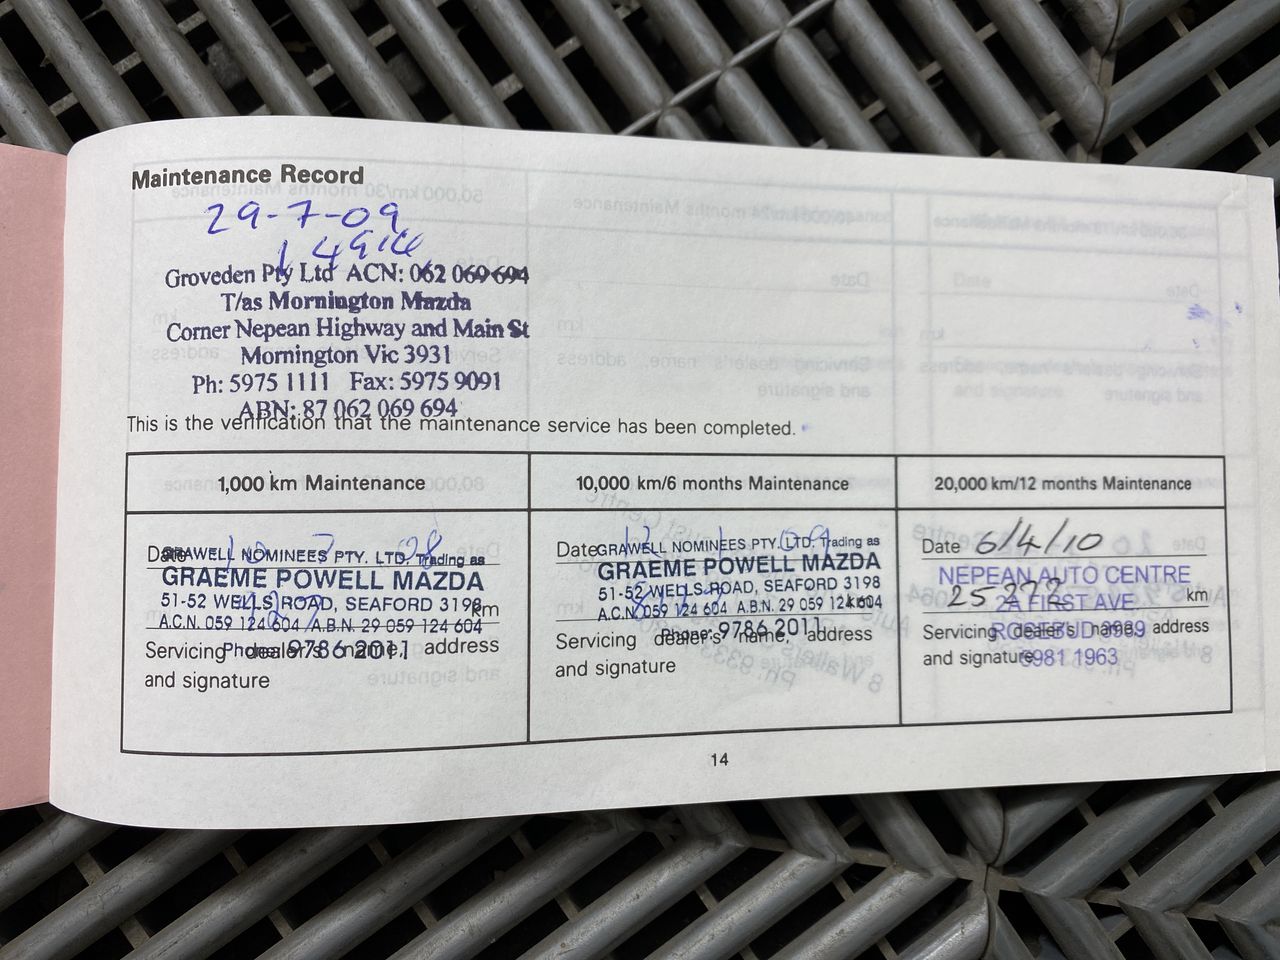 Maintenance Record
29-7-09
Groveden Pty Ltd ACN: 062 069 694
T/as Mornington Mazda
Corner Nepean Highway and Main St
Mornington Vic 3931
Ph: 5975 1111 Fax: 5975 9091
ABN: 87 062 069 694
This is the verification that the maintenance service has been completed.
1,000 km Maintenance
Date
GRAWELL NOMINEES PTY. LTD. Trading as
GRAEME POWELL MAZDA
51-52 WELLS ROAD, SEAFORD 3198
km
A.C.N. 059 124 604 A.B.N. 29 059 124 604
Phone: 9786 2011
Servicing dealer's name, address
and signature
10,000 km/6 months Maintenance
Date
GRAWELL NOMINEES PTY. LTD. Trading as
GRAEME POWELL MAZDA
51-52 WELLS ROAD, SEAFORD 3198
km
A.C.N. 059 124 604 A.B.N. 29 059 124 604
Phone: 9786 2011
Servicing dealer's name, address
and signature
20,000 km/12 months Maintenance
Date 6/4/10
NEPEAN AUTO CENTRE
km
2A FIRST AVE.
ROSEBUD 3939
Servicing dealer's name, address
5981 1963
and signature
14